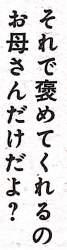 それで褒めてくれるの
お母さんだけだよ？